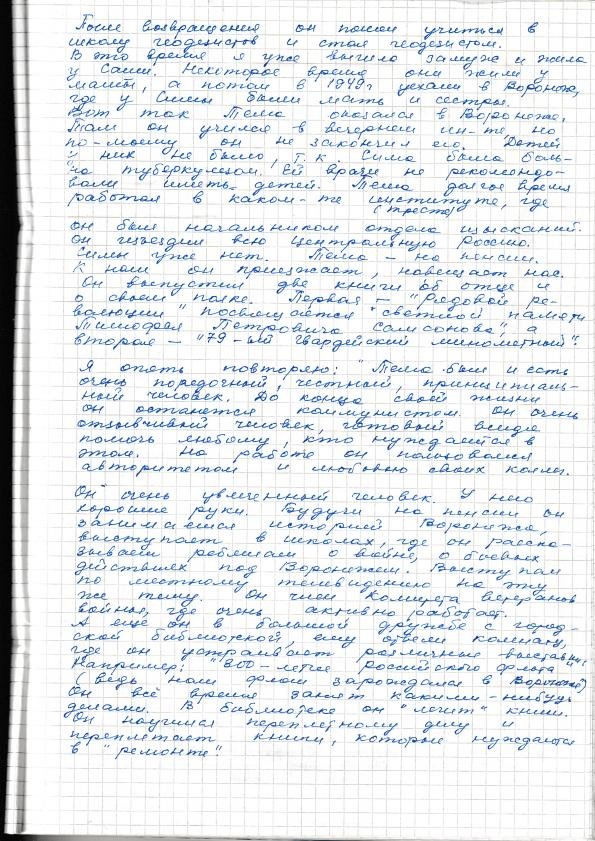 После возвращения он пошел учиться в
школу геодезистов и стал геодезистом.
В это время я уже вышла замуж и жила
у Саши. Некоторое время они жили у
мамы, а потом в 1949г уехали в Воронеж,
где у Симы были мать и сестры.
Вот так Тема оказался в Воронеже.
Там он учился в вечернем ин-те, но
по-моему он не закончил его. Детей
у них не было, т.к. Сима была боль-
на туберкулезом. Ей врачи не рекомендо-
вали иметь детей. Тема долгое время
работал в каком-те институте, где
(тресте)
он был начальником отдела изысканий.
Он изъездил всю Центральную Россию.
Симы уже нет. Тема - на пенсии.
К нам он приезжает, навещает нас.
Он выпустил две книги об отце и
о своем полке. Первая - "Рядовой ре-
волюции" посвящается "светлой памяти
Тимофея Петровича Самсонова", а
вторая - "79-ый гвардейский минометный".
Я опять повторяю: "Тема был и есть
очень порядочный, честный, принципиаль-
ный человек. До конца своей жизни
он останется коммунистом. Он очень
отзывчивый человек, готовый всегда
помочь любому, кто нуждается в
этом. На работе он пользовался
авторитетом и любовью своих коллег.
Он очень увлеченный человек. У него
хорошие руки. Будучи на пенсии он
занимается историей Воронежа,
выступает в школах, где он расска-
зывает ребятам о войне, о боевых
действиях под Воронежем. Выступал
по местному телевидению на эту
же тему. Он член Комитета ветеранов
войны, где очень активно работает.
А еще он в большой дружбе с город-
ской библиотекой, ему отвели комнату,
где он устраивает различные выставки.
Например: "300-летие Российского флота"
(ведь наш флот зарождался в Воронеже)
Он всё время занят какими-нибудь
делами. В библиотеке он "лечит" книги.
Он научился переплетному делу и
переплетает книги, которые нуждаются
в "ремонте".